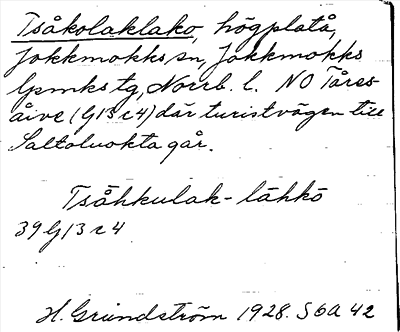 Tsåkolaklako, högplatå,
Jokkmokks sn, Jokkmokks
lpmks tg, Norrb. l. NO Tåres-
åive (G13 c4) där turistvägen till
Saltoluokta går.
Tsåhkulak-lähkō
39 G13 c4
H. Grundström 1928. S 6a 42